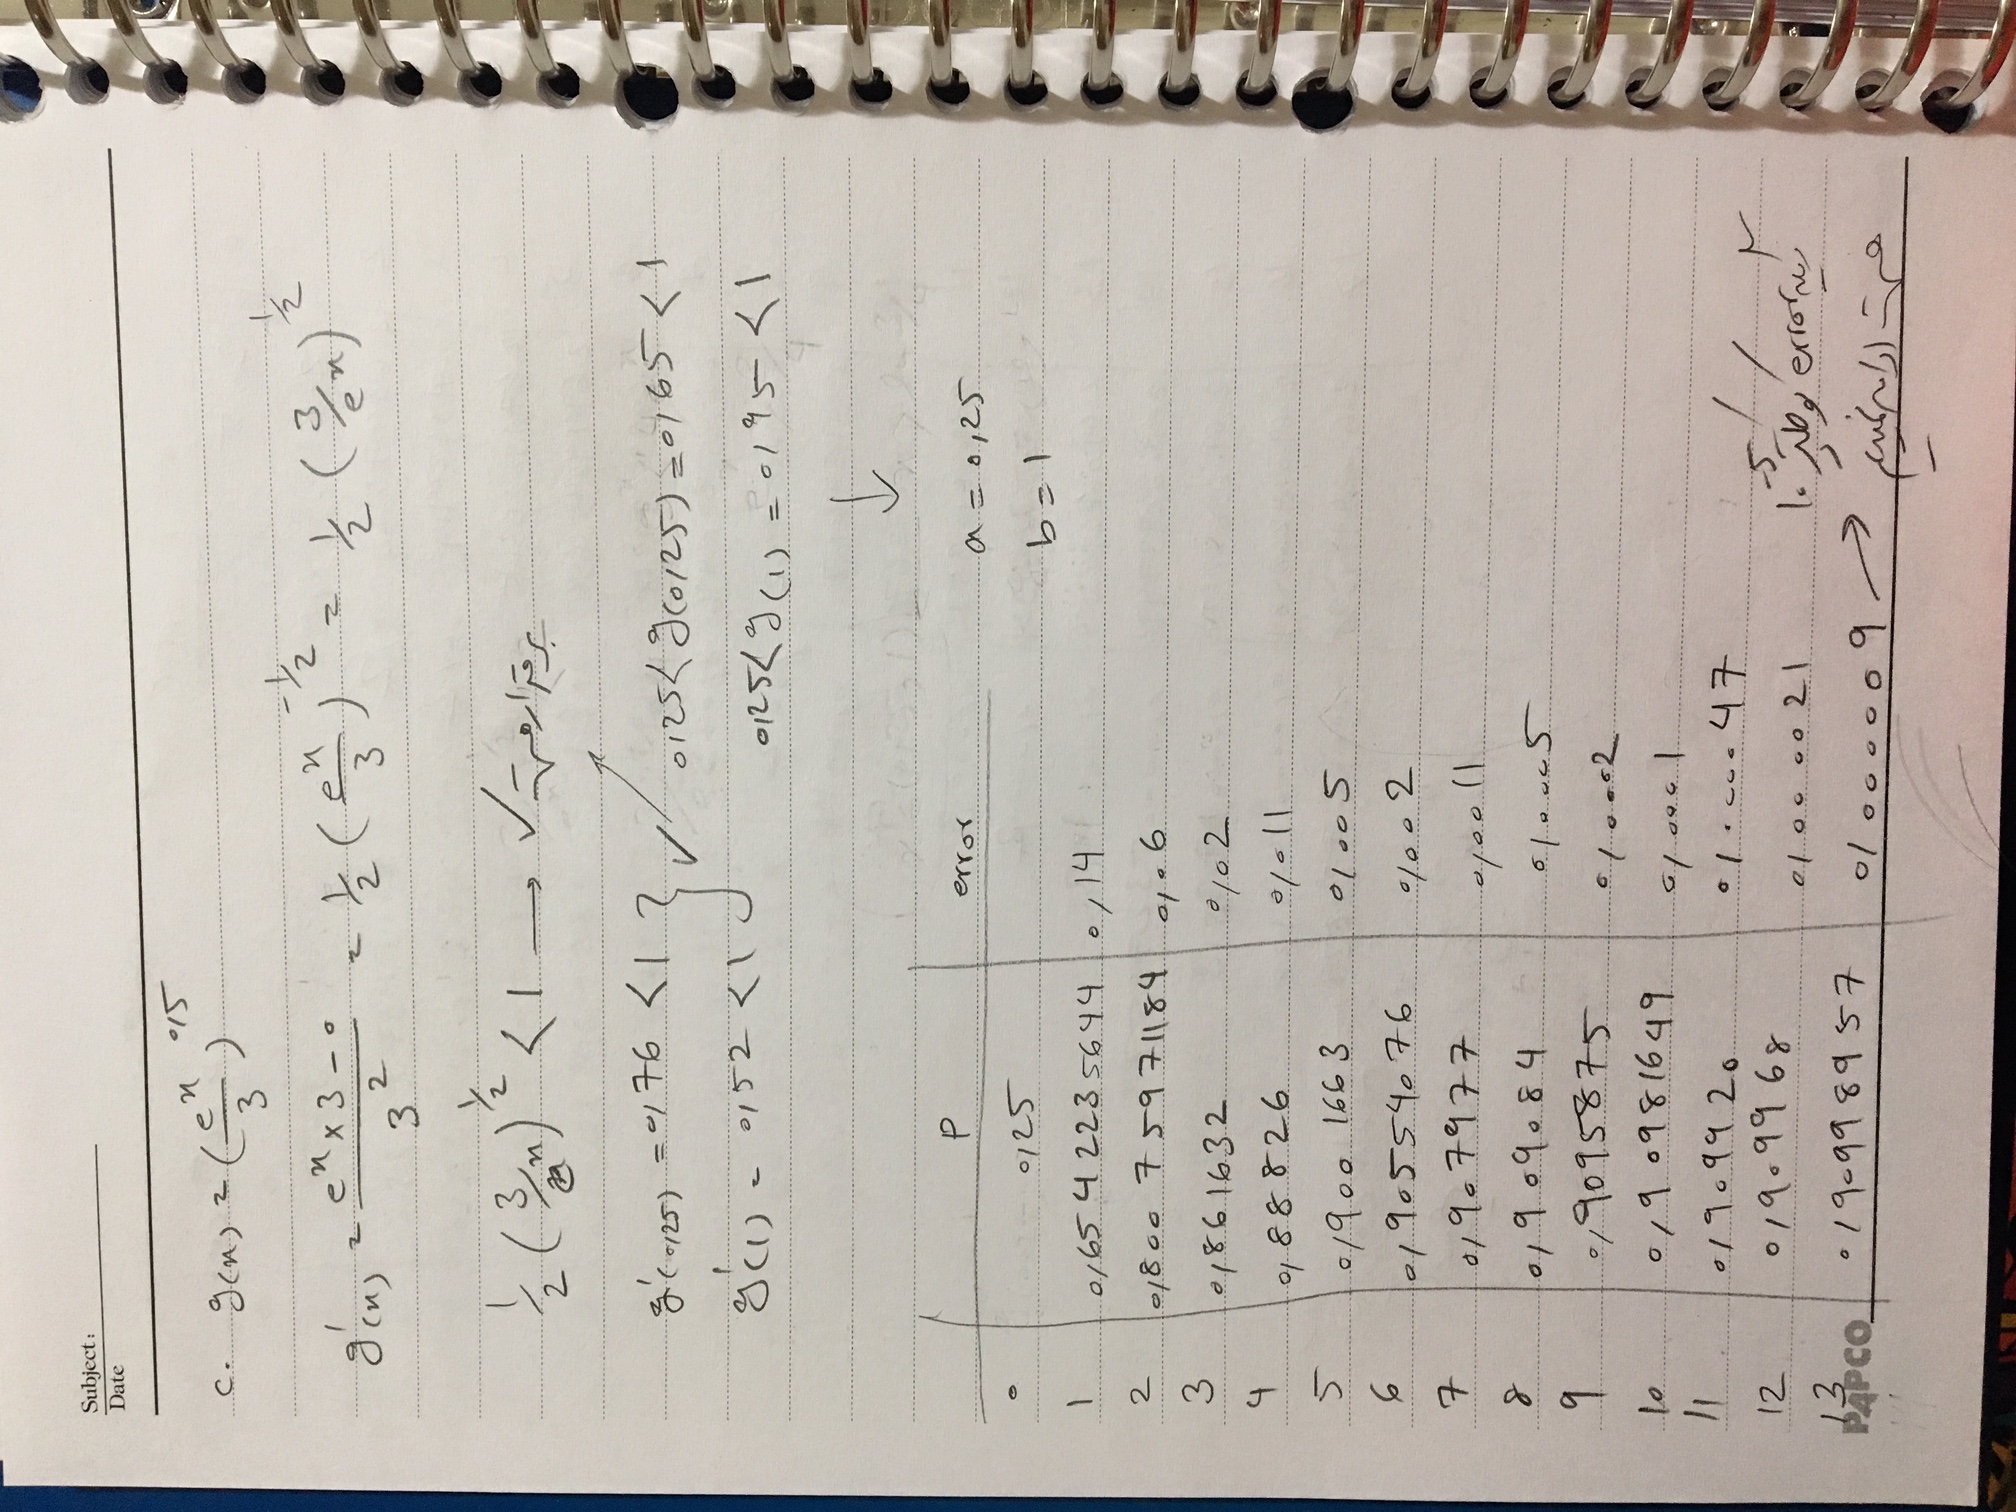 Subject:
Date
c. g(x) = (e^x/3)^0,5
g'(x) = (e^x × 3 - 0)/3^2 = 1/2 (e^x/3)^-1/2 = 1/2 (3/e^x)^1/2
1/2 (3/e^x)^1/2 < 1 → ✓ برقرار هست
g'(0,25) = 0,76 < 1 } ✓ 0,25 < g(0,25) = 0,65 < 1
g'(1) = 0,52 < 1 0,25 < g(1) = 0,95 < 1
↓
P error a = 0,25
0 0,25
b = 1
1 0,6542235644 0,14
2 0,80075971184 0,06
3 0,861632 0,02
4 0,88826 0,011
5 0,9001663 0,005
6 0,90554076 0,002
7 0,907977 0,0011
8 0,909084 0,0005
9 0,9095875 0,0002
10 0,90981649 0,0001
11 0,909920 0,000047
12 0,909968 0,000021 دیگه error کوچکتر 10^-5
13 0,90998957 0,000009 → هست ادامه نمیدیم
PAPCO